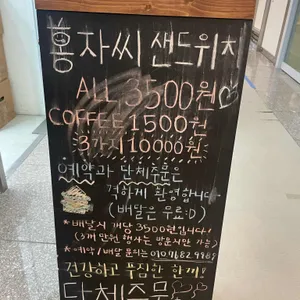 홍자씨 샌드위치
ALL 3500원
COFFEE 1500원
3가지 10000원
예약과 단체주문은
격하게 환영합니다
(배달은 무료:D)
*배달시 개당 3500원입니다!
(3개 만원 행사는 방문시만 가능)
*예약/배달 문의는
건강하고 푸짐한 한끼!
단체주문